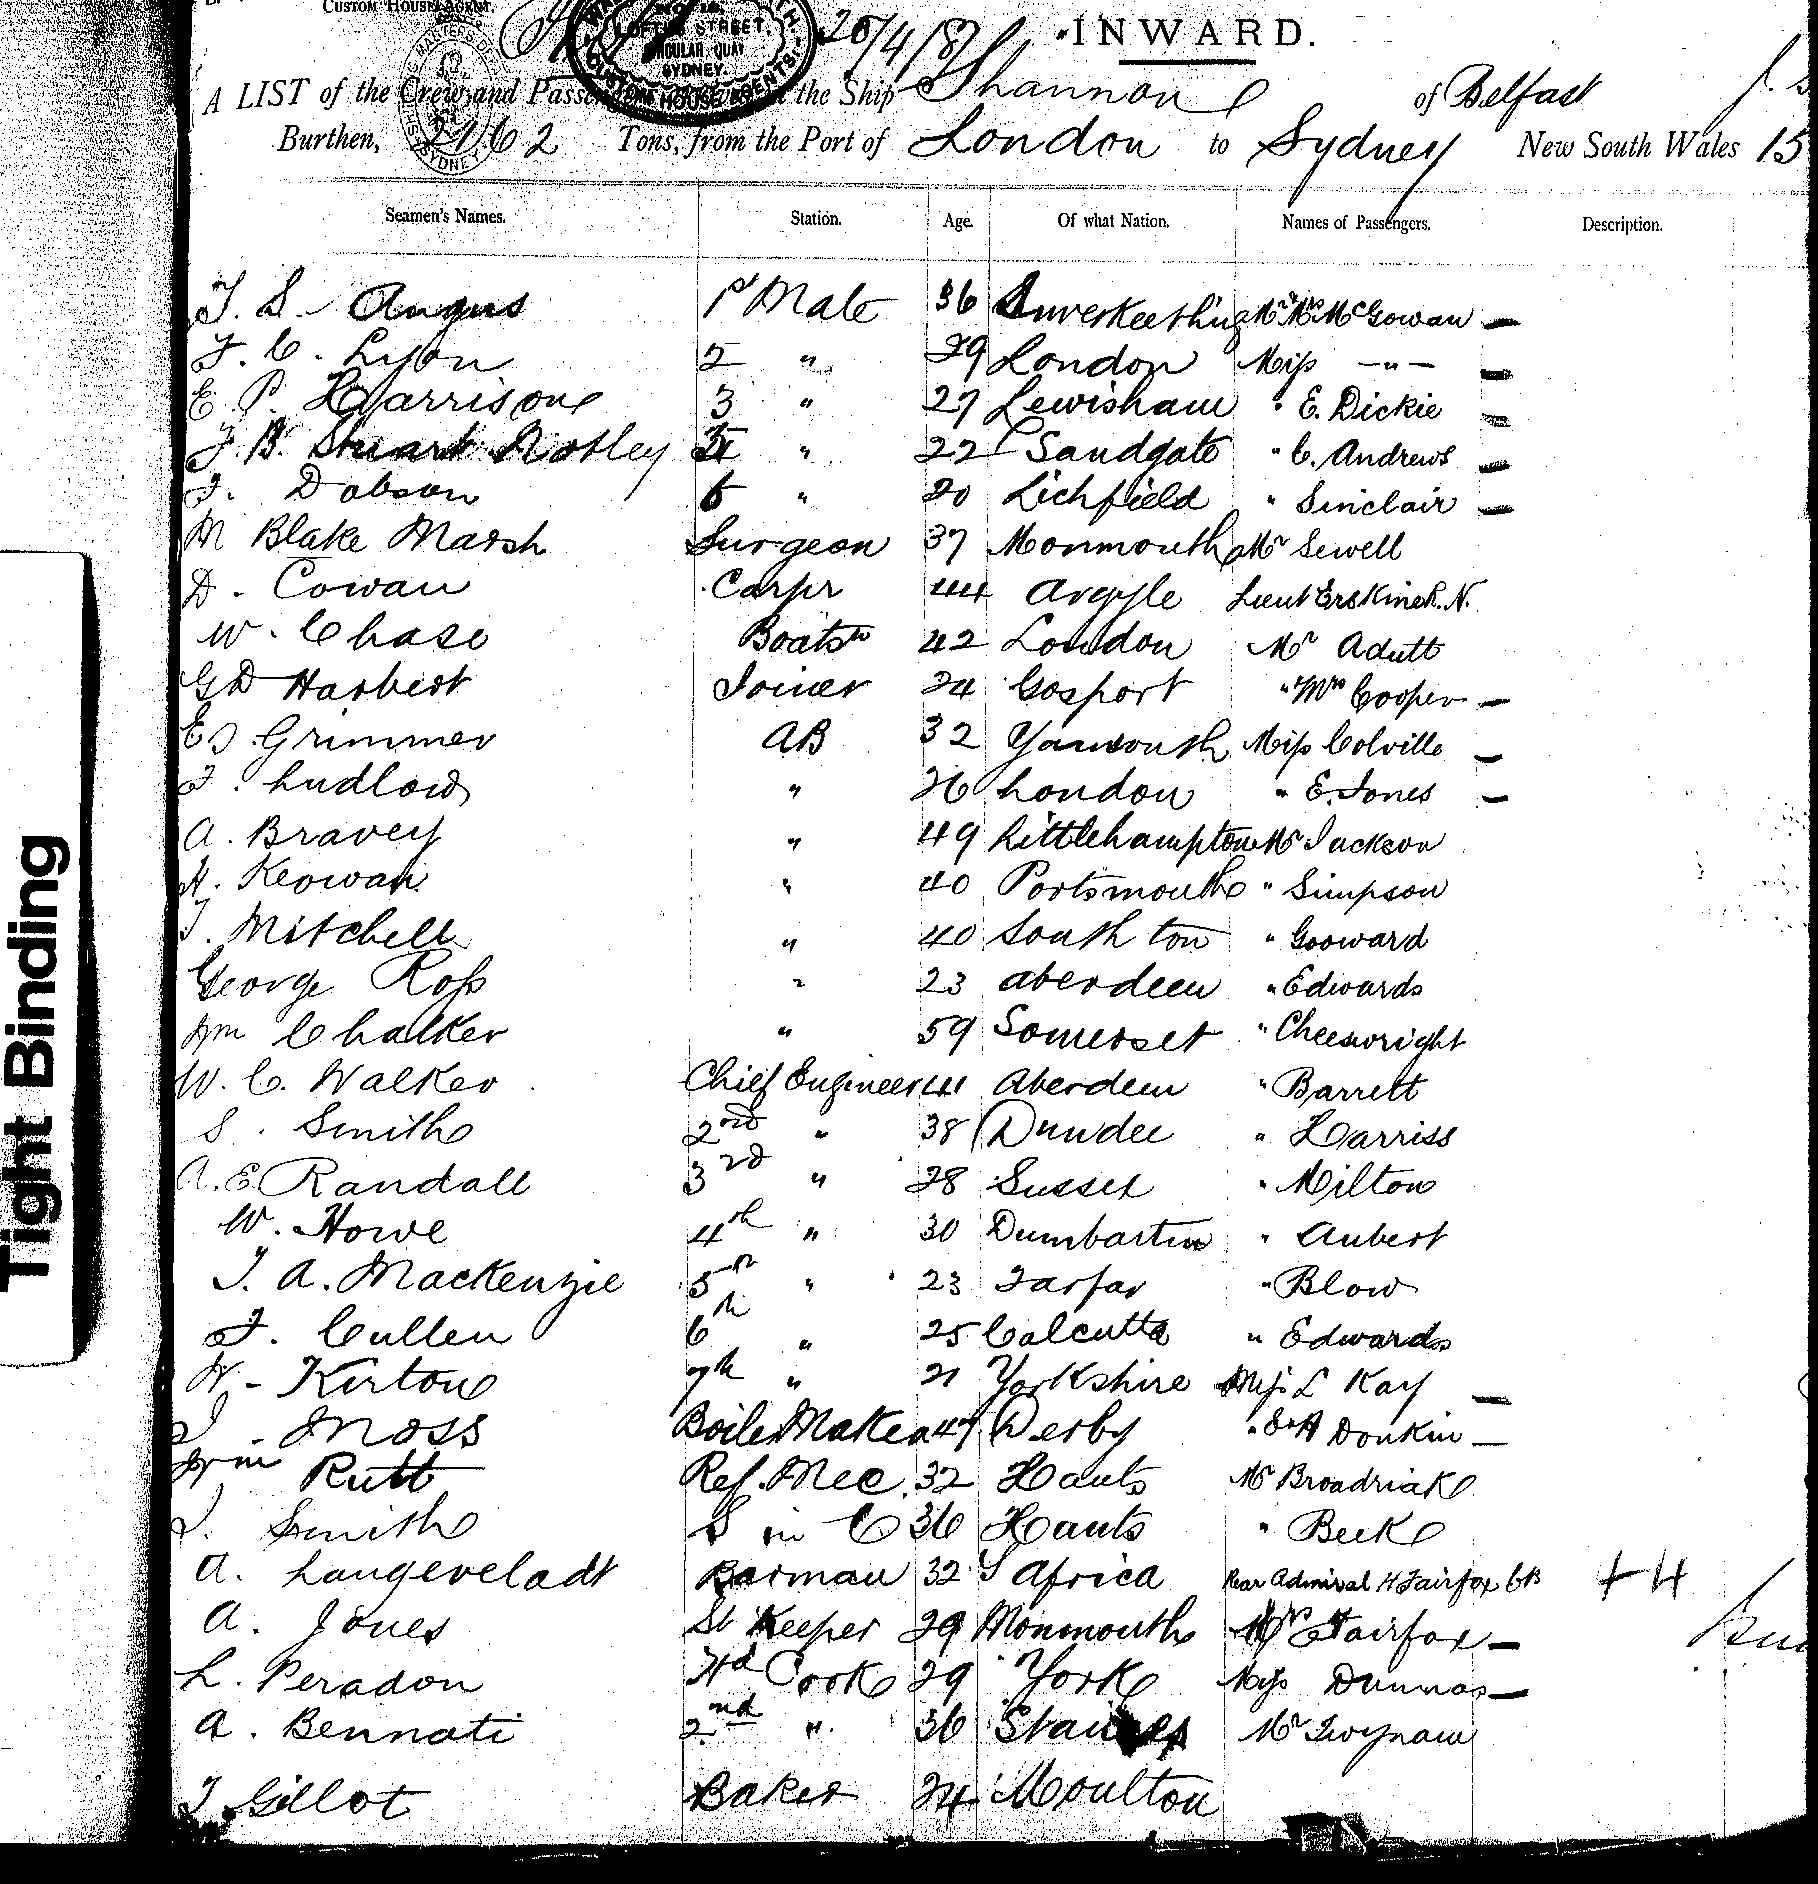 CUSTOM HOUSE AGENT.
LOFTUS STREET,
CIRCULAR QUAY
SYDNEY.
CUSTOM HOUSE AGENTS
26/4/8
INWARD.
A LIST of the Crew and Passengers the Ship Shannon of Belfast
Burthen, 2162 Tons, from the Port of London to Sydney New South Wales 15
Seamen's Names. Station. Age. Of what Nation. Names of Passengers. Description.
T. S. Angus 1st Mate 36 Inverkeithing Mr Mrs McGowan —
F. C. Lyon 2 " 29 London Miss —"— —
E. P. Harrison 3 " 27 Lewisham " E. Dickie —
F. B. Stuart Notley 4 " 22 Sandgate " C. Andrews —
J. Dobson 5 " 20 Lichfield " Sinclair —
M Blake Marsh Surgeon 37 Monmouth Mr Sewell
D. Cowan Carpr 44 Argyle Lieut Erskine R.N.
W. Chase Boatsn 42 London Mr Adutt
G D Harbert Joiner 24 Gosport " Mrs Cooper —
E J Grimmer AB 32 Yarmouth Miss Colville —
F. Ludlow " 26 London " E. Jones —
A. Bravey " 49 Littlehampton Mr Jackson
H. Keowan " 40 Portsmouth " Simpson
T. Mitchell " 40 South ton " Gooward
George Ross " 23 Aberdeen " Edwards
Wm Chalker " 59 Somerset " Cheeswright
W. C. Walker Chief Engineer 41 Aberdeen " Barrett
S. Smith 2nd " 38 Dundee " Harriss
A. E. Randall 3rd " 28 Sussex " Milton
W. Howe 4th " 30 Dumbarton " Aubert
J. A. Mackenzie 5th " 23 Forfar " Blow
F. Cullen 6th " 25 Calcutta " Edwards
W. Kirton 7th " 21 Yorkshire Miss L Kay —
J. Moss Boiler Maker 47 Derby " E & A Donkin —
Wm Rutt Ref. Mec. 32 Hants Mr Broadriak
J. Smith S in C 36 Hants " Beek
A. Langeveladt Barman 32 S Africa Rear Admiral H Fairfax CB +4
A. Jones St Keeper 29 Monmouth Mrs Fairfax —
L. Peradon Hd Cook 29 York Miss Dumas —
A. Bennati 2nd " 36 Staines Mr Twynam
T Gillot Baker 24 Moulton
Tight Binding